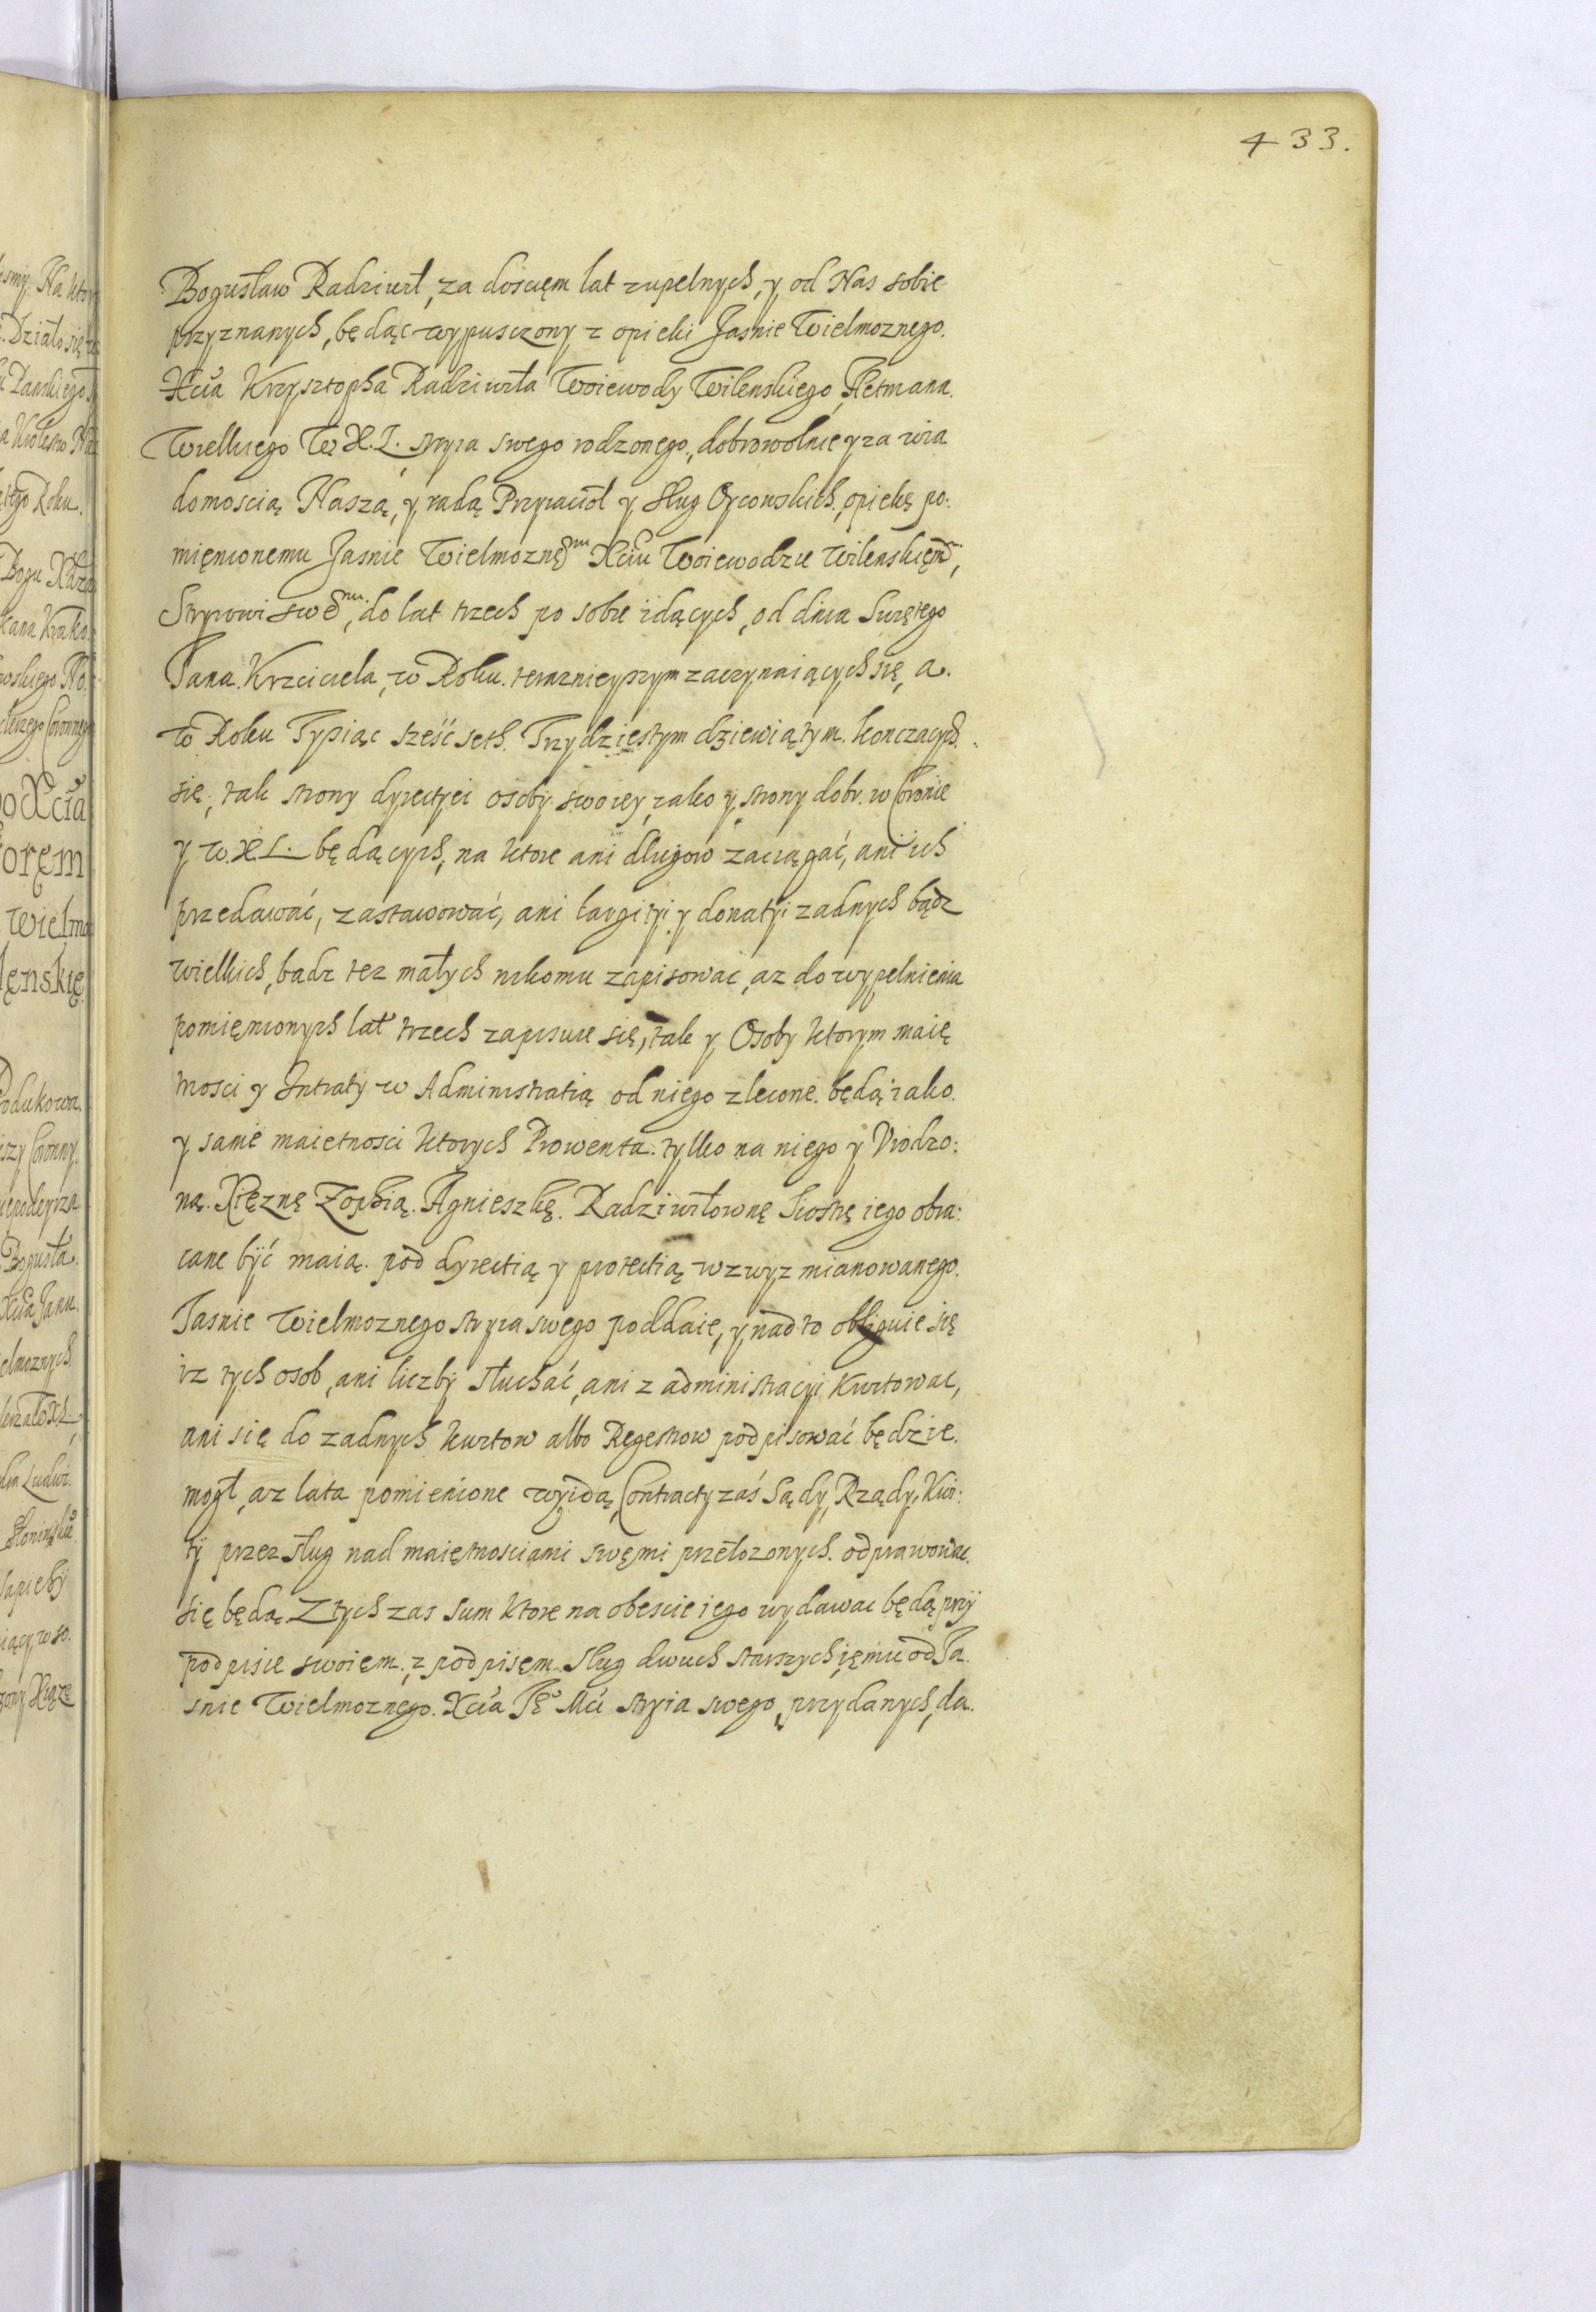 433.
Bogusław Radziwił, za dosciem lat zupelnych, y od Nas sobie
przyznanych, będąc wypusczony z opieki Jasnie Wielmoznego.
Xcia Krzysztopha Radziwiła Woiewody Wilenskiego, Hetmana.
Wielkiego W. X. L. stryia swego rodzonego, dobrowolnie y za wia
domoscią Naszą, y radą Przyiacioł y Sług Oycowskich, opiekę po:
mięnionemu Jasnie Wielmoznęmu Xciu Woiewodzie Wilenskięmu,
Stryiowi swemu, do lat trzech po sobie idących, od dnia Swiętego
Jana Krzciciela, w Roku teraznieyszym zaczynaiących się, a.
w Roku Tysiąc sześć seth. Trzydziestym dziewiątym. konczacych.
się, tak strony dyrectyei osoby swoiey, iako y strony dobr. w Coronie
y w X L. będących, na ktore ani długow zaciągać, ani ich
przedawać, zastawować, ani largityi y donatyi zadnych bądz
wielkich, badz tez małych nikomu zapisować, az do wypelnienia
pomięnionych lat trzech zapisuie się, tak y Osoby ktorym maię
tnosci y Intraty w Administratią od niego zlecone. będą iako.
y same maietnosci ktorych Prowenta. tylko na niego y Vrodzo:
ną. Xięznę Zophią. Agnieszkę. Radziwiłownę Siostrę iego obra:
cane być maią. pod dyrectią y protectią wzwyz mianowanego.
Jasnie Wielmoznego stryia swego poddaie, y nad to obliguie się
iz tych osob, ani liczby słuchać, ani z administracyi kwitowac,
ani się do zadnych kwitow albo Regestrow podpisować będzie.
mogł, az lata pomienione wyidą, Contracty zaś Sądy, Rządy, Kwi:
ty przez sług nad maiętnosciami swęmi przełozonych. odprawować.
się będą. Z tych zas sum ktore na obescie iego wydawac będą przy
podpisie swoięm. z podpisęm sług dwuch starszych ięmu od Ja.
snie Wielmoznego. Xcia Jęo Mci stryia swego, przydanych, da.